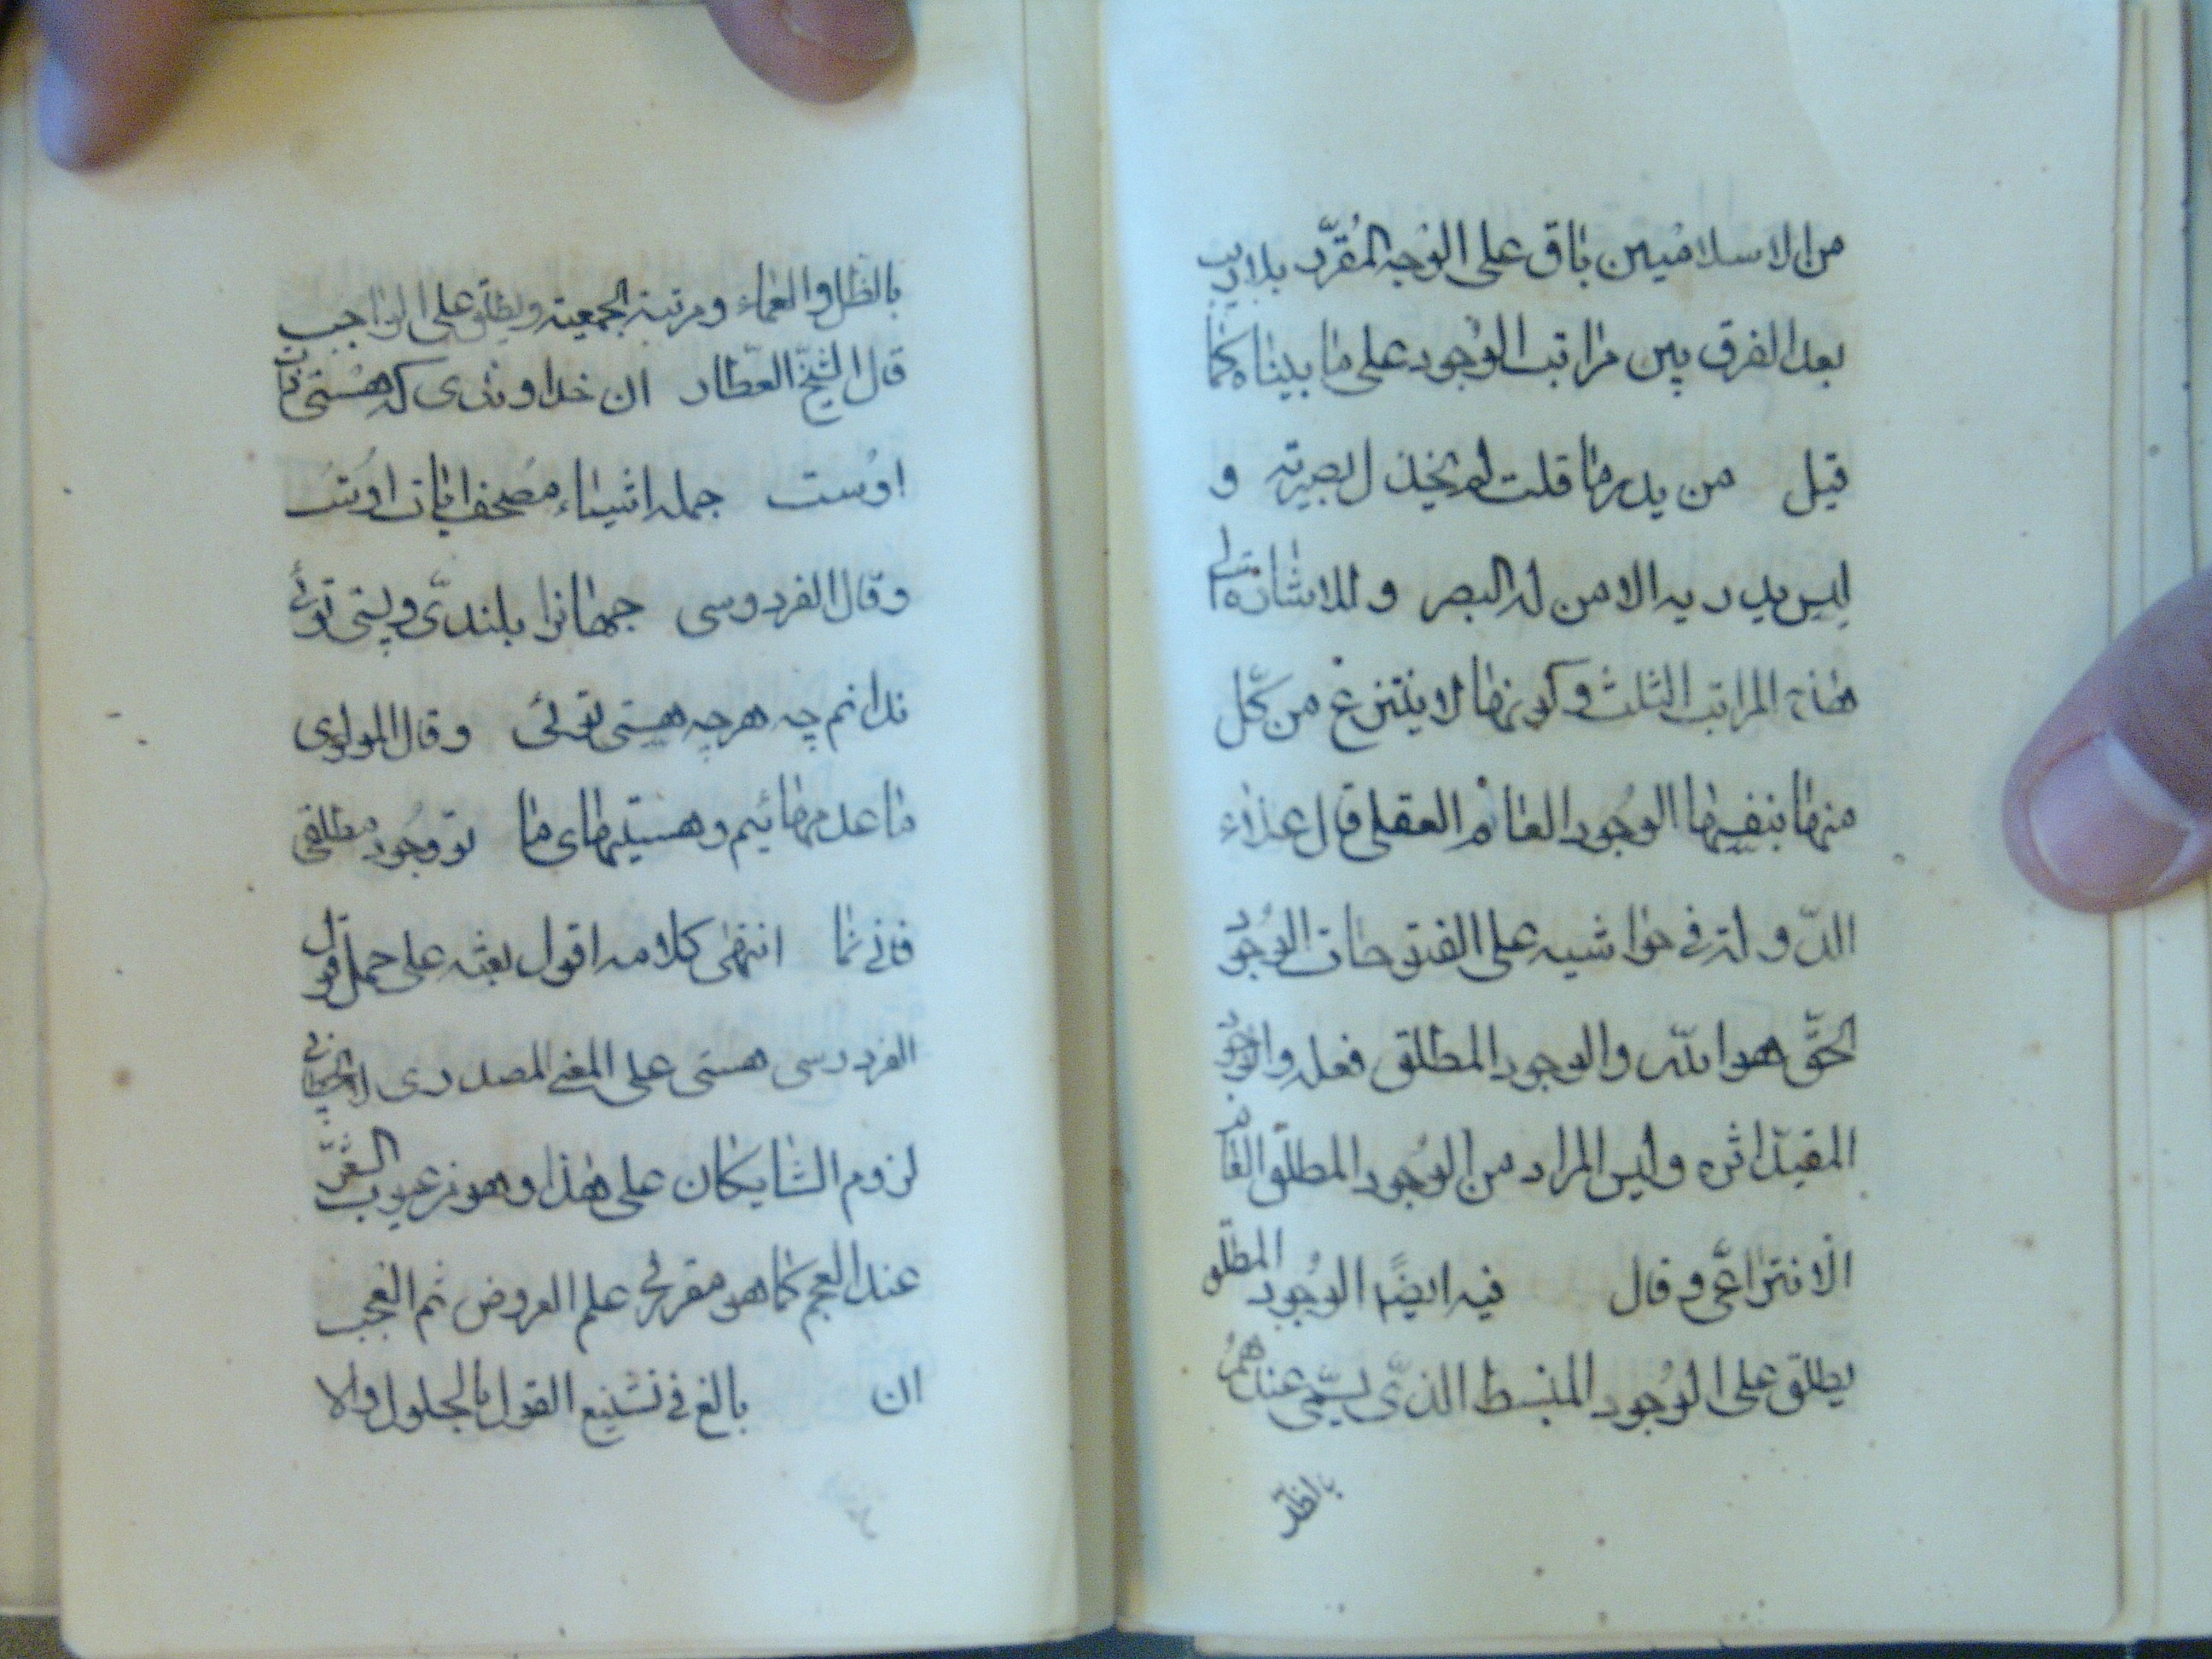 من الاسلاميين باق على الوجه المقرّر بلا ريب
بعد الفرق بين مراتب الوجود على ما بيناه كما
قيل من يدر ما قلت لم يخذل بصيرته و
ليس يدريه الا من له البصر وللاشارة الى
هذه المراتب الثلث وكونها لا ينتزع من كلّ
منها بنفسها الوجود العام العقلى قال علاء
الدّولة فى حواشيه على الفتوحات الوجود
الحقّ هو الله والوجود المطلق فعله والوجود
المقيّد اثره وليس المراد من الوجود المطلق العام
الانتزاعّى وقال فيه ايضًا الوجود المطلق
يطلق على الوجود المنبسط الذّى يسمّى عندهم
بالظل
بالظل والعماء ومرتبة الجمعية ويطلق على الواجب
قال الشيخ العطّار ان خداوندى كه هستى ذات
اوست جمله اشياء مصحف ايات اوست
وقال الفردوسى جهانرا بلندىّ وپستى توئى
ندانم چه هرچه هستى توئى وقال المولوى
ما عدمهائيم وهستيهاى ما تو وجود مطلقى
فانى نما انتهى كلامه اقول بعثه على حمل قول
الفردوسى هستى على المعنى المصدرى
لزوم الشايكان على هذا وهو من عيوب
عند العجم كما هو مقرر فى علم العروض ثم العجب
ان بالغ فى تشنيع القول بالحلول والا